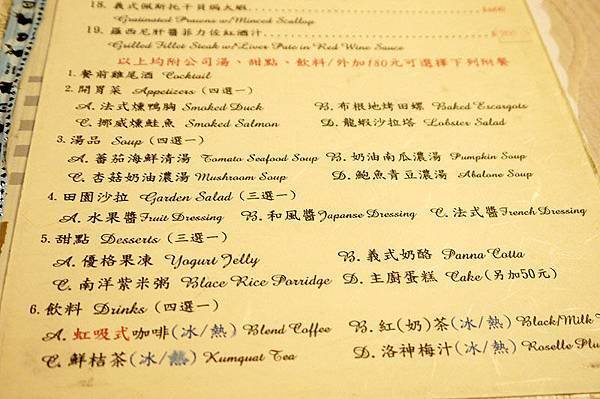 18. 義式佩斯托干貝焗大蝦
Gratinated Prawns w/Minced Scallop
19. 羅西尼肝醬菲力佐紅酒汁
Grilled Fillet Steak w/Liver Pate in Red Wine Sauce
以上均附公司湯、甜點、飲料/外加180元可選擇下列附餐
1. 餐前雞尾酒 Cocktail
2. 開胃菜 Appetizers (四選一)
A. 法式燻鴨胸 Smoked Duck B. 布根地烤田螺 Baked Escargots
C. 挪威燻鮭魚 Smoked Salmon D. 龍蝦沙拉塔 Lobster Salad
3. 湯品 Soup (四選一)
A. 蕃茄海鮮清湯 Tomato Seafood Soup B. 奶油南瓜濃湯 Pumpkin Soup
C. 杏菇奶油濃湯 Mushroom Soup D. 鮑魚青豆濃湯 Abalone Soup
4. 田園沙拉 Garden Salad (三選一)
A. 水果醬 Fruit Dressing B. 和風醬 Japanse Dressing C. 法式醬 French Dressing
5. 甜點 Desserts (三選一)
A. 優格果凍 Yogurt Jelly B. 義式奶酪 Panna Cotta
C. 南洋紫米粥 Blace Rice Porridge D. 主廚蛋糕 Cake (另加50元)
6. 飲料 Drinks (四選一)
A. 虹吸式咖啡(冰/熱) Blend Coffee B. 紅(奶)茶(冰/熱) Black/Milk
C. 鮮桔茶(冰/熱) Kumquat Tea D. 洛神梅汁(冰/熱) Roselle